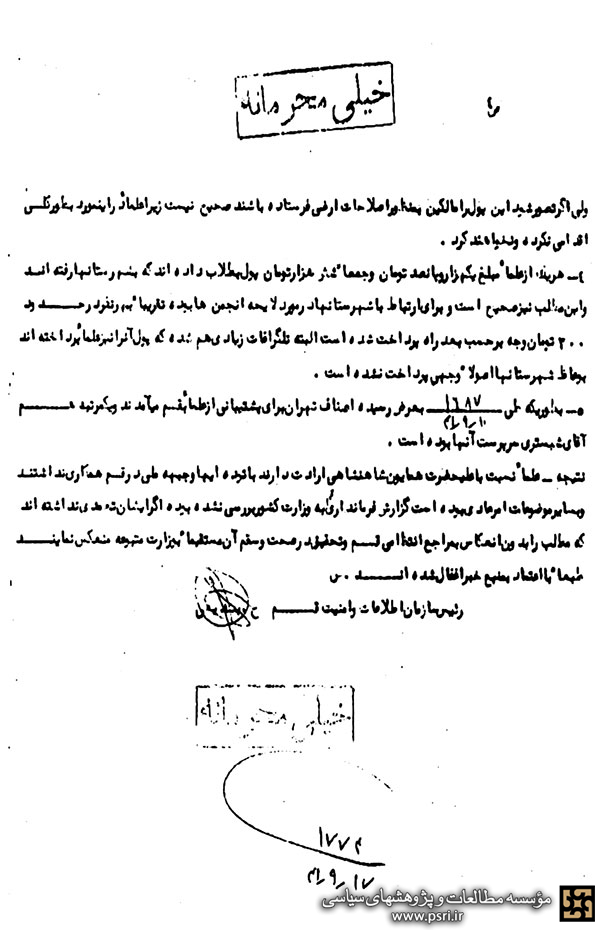 خیلی محرمانه
ولی اگر تصور شود این پول را مالکین بمنظور اصلاحات ارضی فرستاده باشند صحیح نیست زیرا علماء در اینمورد بطور کلی
اقدامی نکرده و نخواهند کرد .
۴ـ هر یک از علماء مبلغ یکهزار و پانصد تومان و جمعاً شش هزار تومان پول بطلاب داده اند که بشهرستانها رفته انــد
و این مطلب نیز صحیح است و برای ارتباط با شهرستانها در مورد لایحه انجمن ها بوده تقریباً بهر نفر در حـــدود
۲۰۰ تومان وجه بر حسب بعد راه پرداخت شده است البته تلگرافات زیادی هم شده که پول آنرا نیز علماء پرداخته اند
بوعاظ شهرستانها اصولاً وجهی پرداخت نشده است .
۵ـ بطوریکه طی ۱۶۸۷ بعرض رسیده اصناف تهران برای پشتیبانی از علماء بقم میآمدند و یکمرتبه هـــم
۴۱/۹/۱۰
آقای شبستری سرپرست آنها بوده است .
نتیجه ـ علماء نسبت باعلیحضرت همایون شاهنشاهی ارادت دارند با توده ایها و جبهه ملی در قم همکاری نداشتند
و بسایر موضوعات امر عادی بوده است گزارش فرمانداری به وزارت کشور بررسی نشده بوده اگر ایشان تعمدی نداشته اند
که مطالب را بدون انعکاس بمراجع انتظامی قـــم و تحقیق در صحت و سقم آن مستقیماً بوزارت متبوعه منعکس نماینـــد
طبعاً با اعتماد بمنبع خبر اغفال شده انـــد . س
رئیس سازمان اطلاعات و امنیت قــــم
خیلی محرمانه
۱۷۷۴
۴۱/۹/۱۷
مؤسسه مطالعات و پژوهشهای سیاسی
www.psri.ir